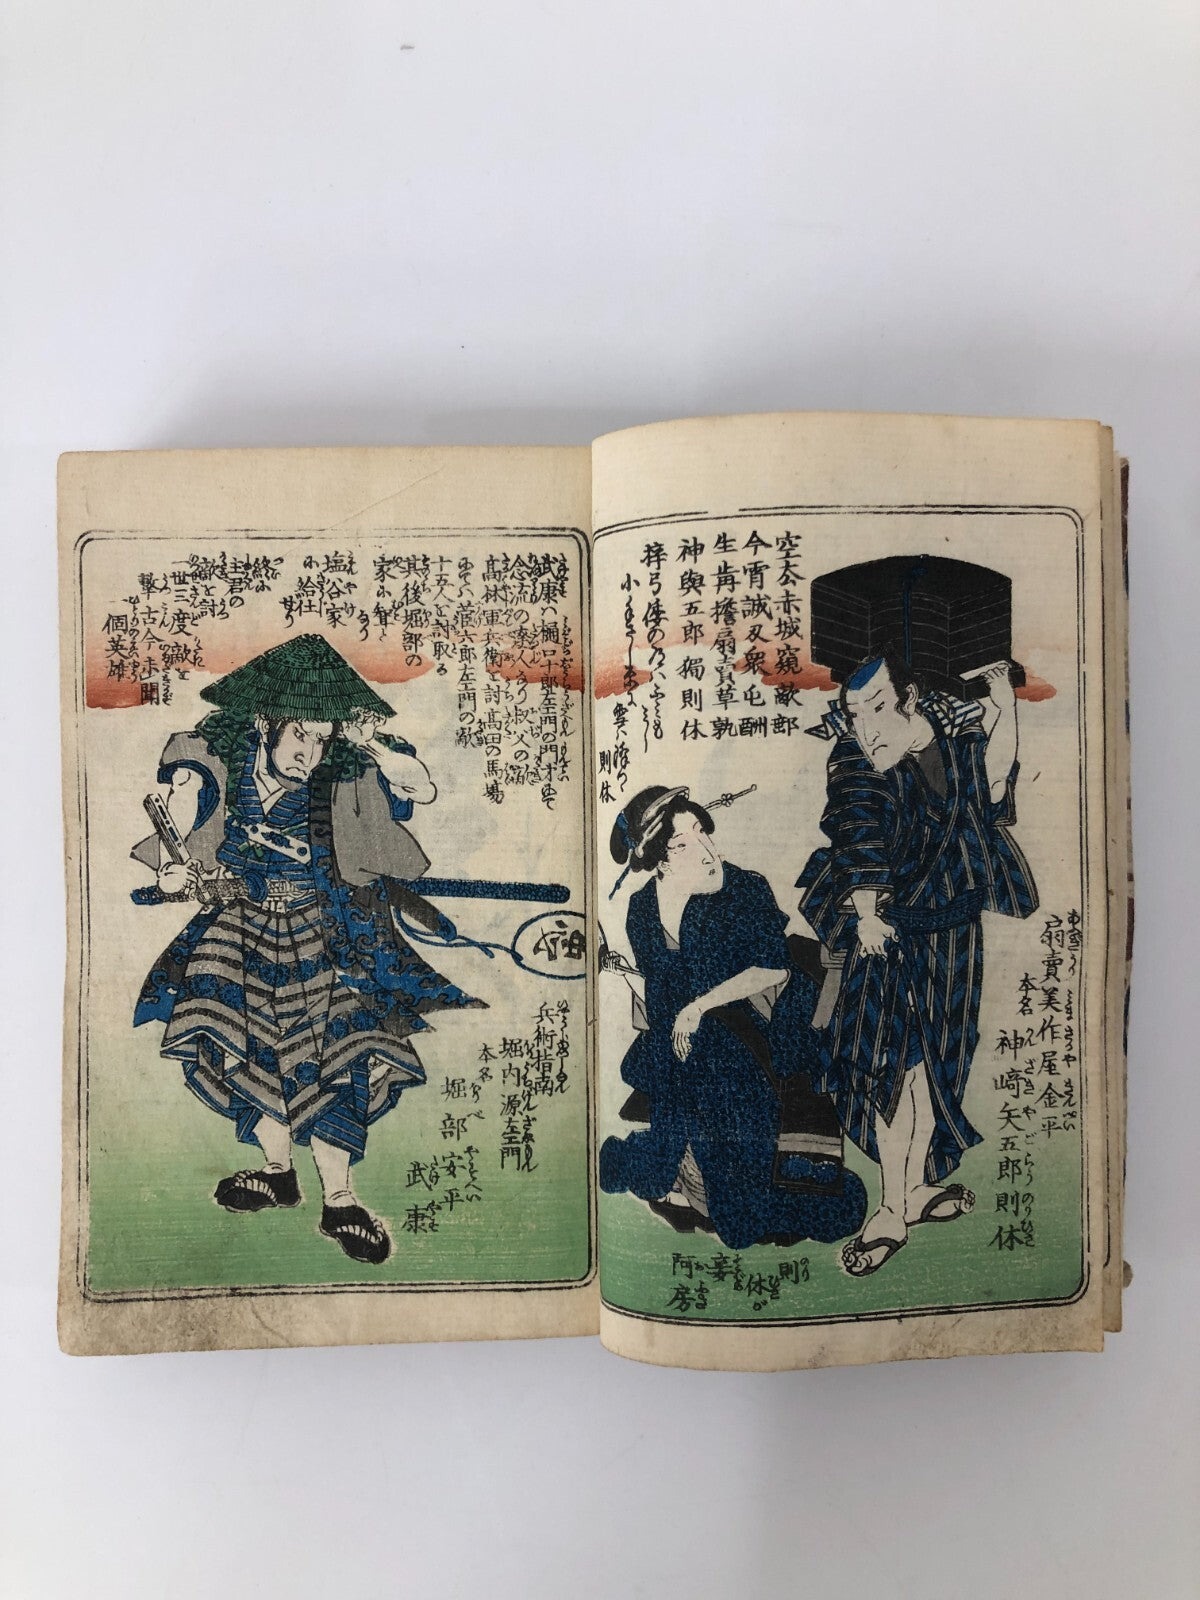 空太赤城窺敵部
今宵誠忍衆屯酬
生肯擔扇賣草孰
神與五郎獨則休
梓弓
則休
扇賣美作屋金平
本名 神﨑矢五郎則休
則休が
妾
阿房
武康ハ樋口十郎左衛門の門才にて
念流の達人なり叔父の讐
髙林軍兵衛を討髙田の馬場
にて菅六郎左衛門の敵
十五人を討取る
其後堀部の
家の聟と
なり
塩谷家
に給仕
せり
終に
主君の
敵を討
一世三度敵を
撃古今未聞
個英雄
兵術指南
堀内源左衛門
本名 堀部安平
武康